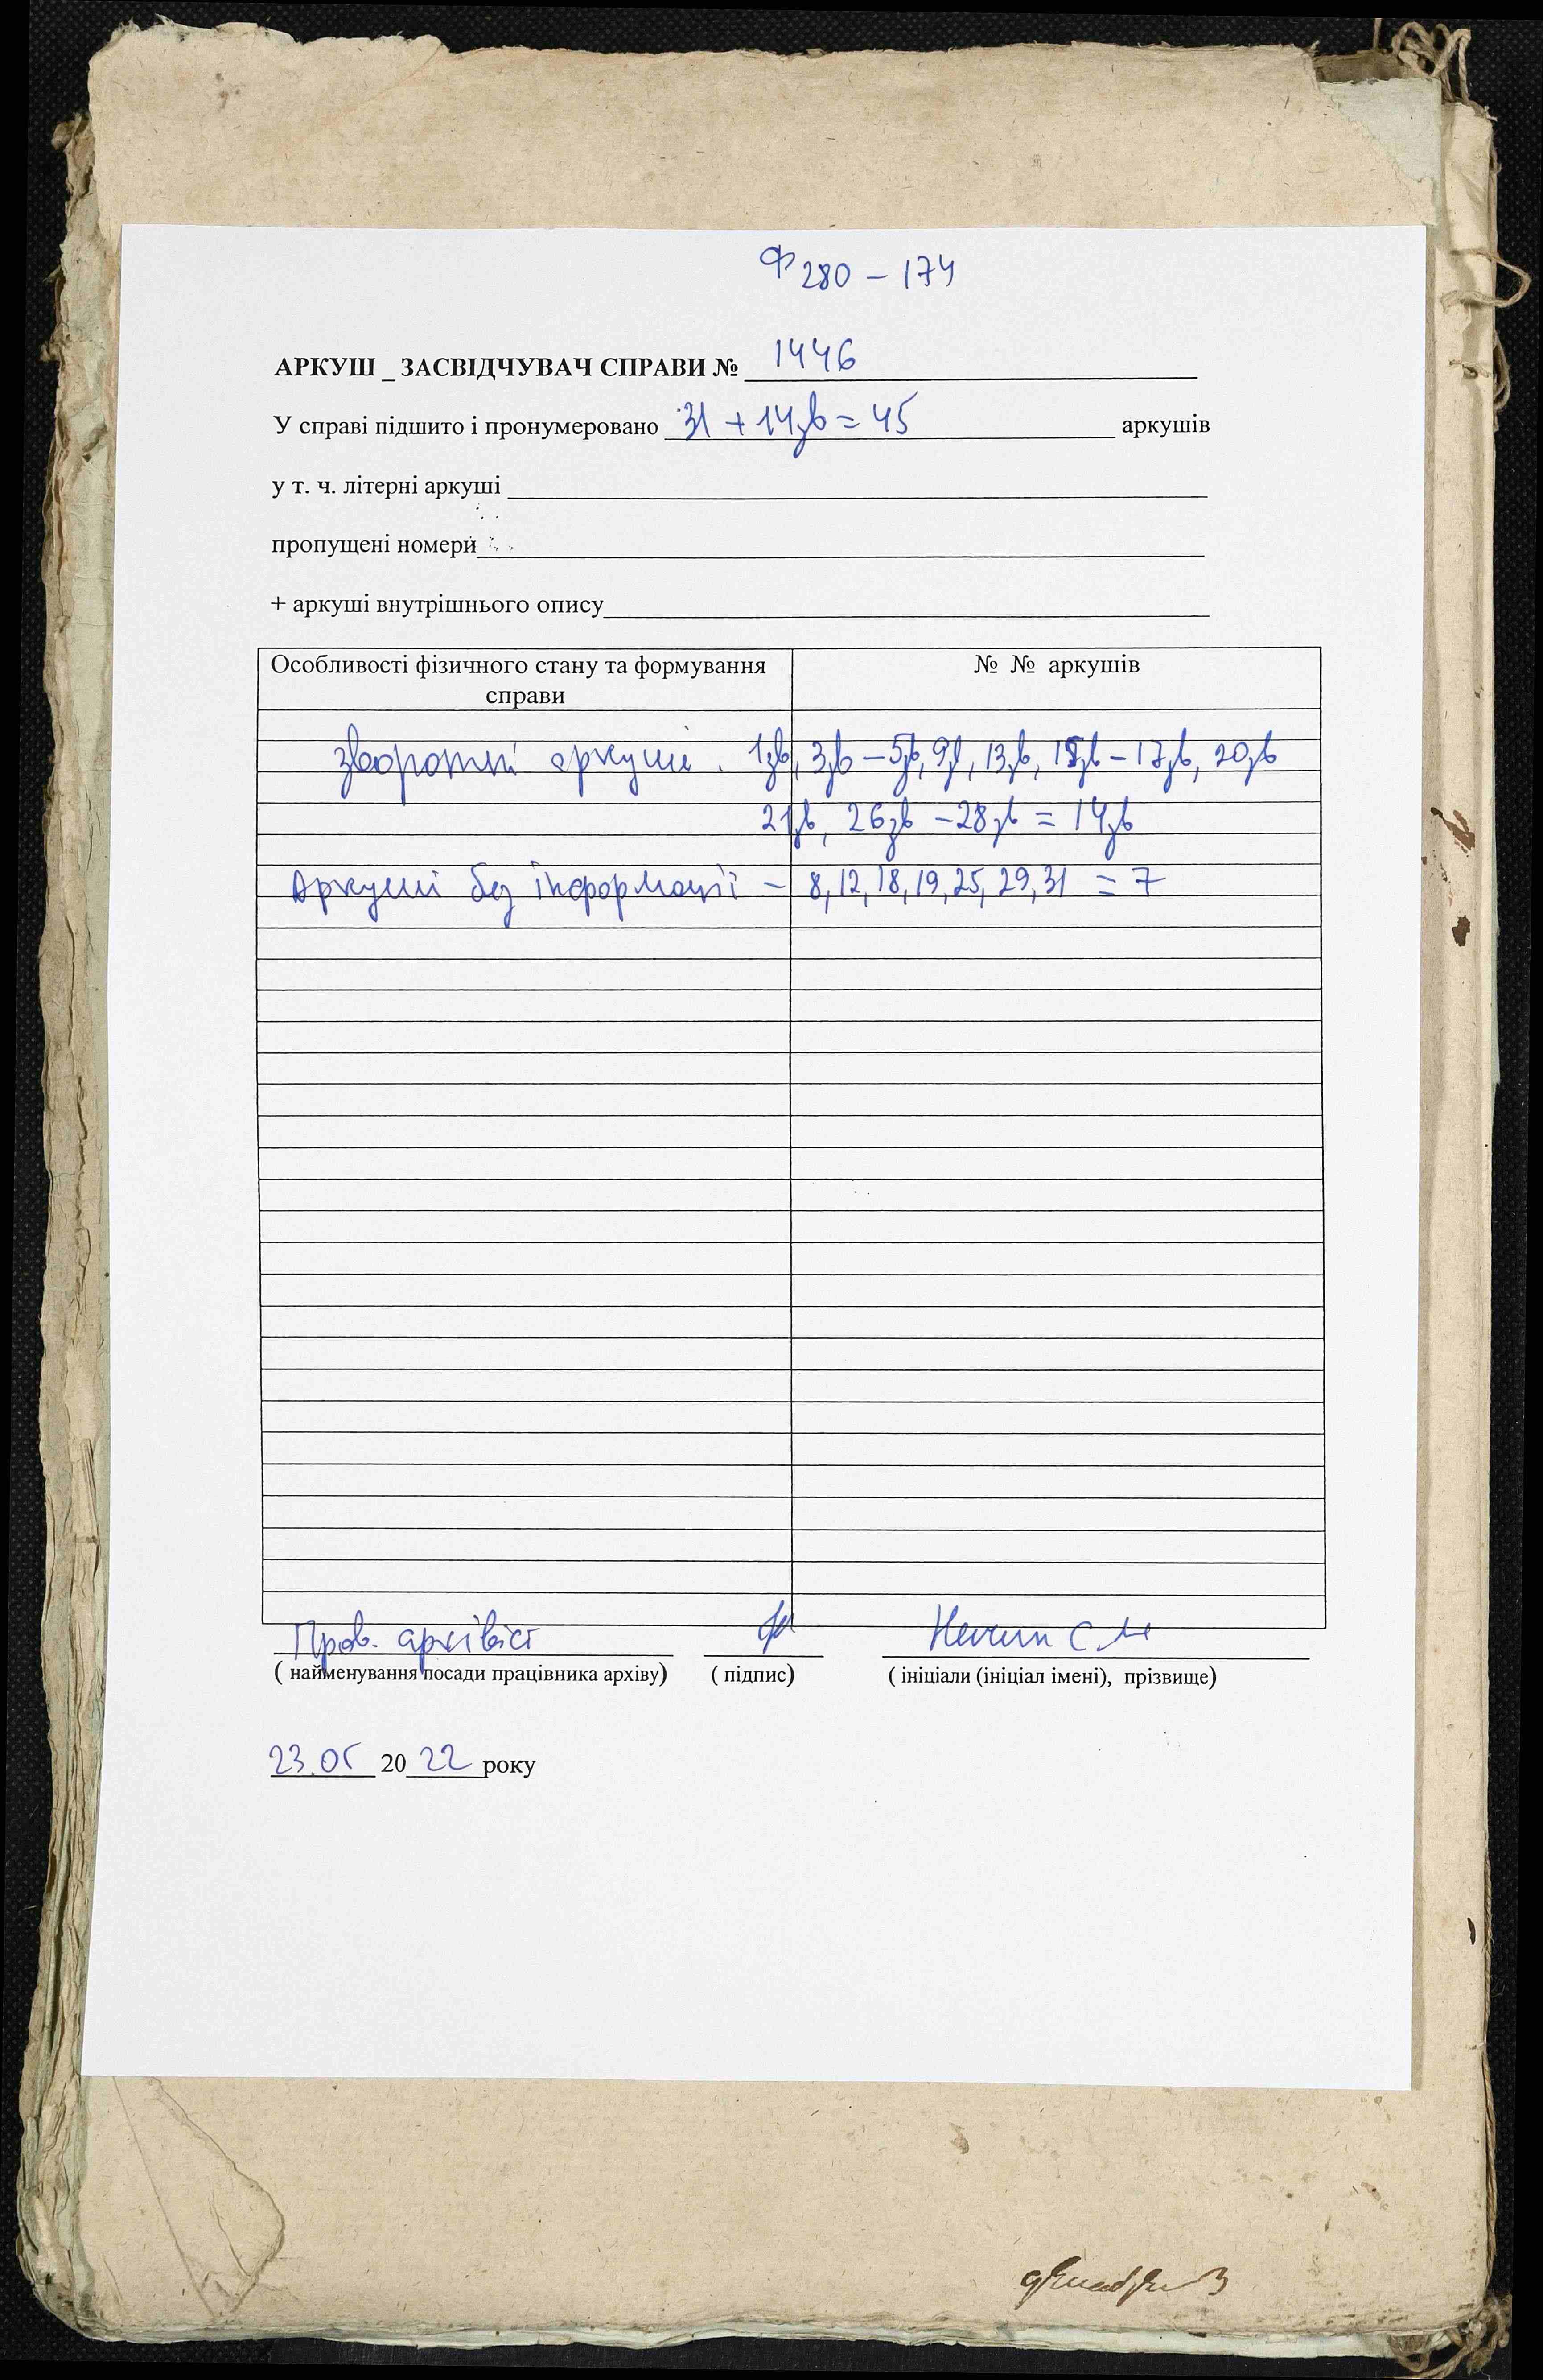 Ф 280 – 174
АРКУШ _ ЗАСВІДЧУВАЧ СПРАВИ № 1446
У справі підшито і пронумеровано 31 + 14зв = 45 аркушів
у т. ч. літерні аркуші
пропущені номери
+ аркуші внутрішнього опису
Особливості фізичного стану та формування справи № № аркушів
зворотні аркуші. 1зв, 3зв – 5зв, 9зв, 13зв, 15зв – 17зв, 20зв
21зв, 26зв – 28зв = 14зв
Аркуші без інформації – 8, 12, 18, 19, 25, 29, 31 = 7
Пров. архівіст
( найменування посади працівника архіву) ( підпис) ( ініціали (ініціал імені), прізвище)
23.05 2022 року